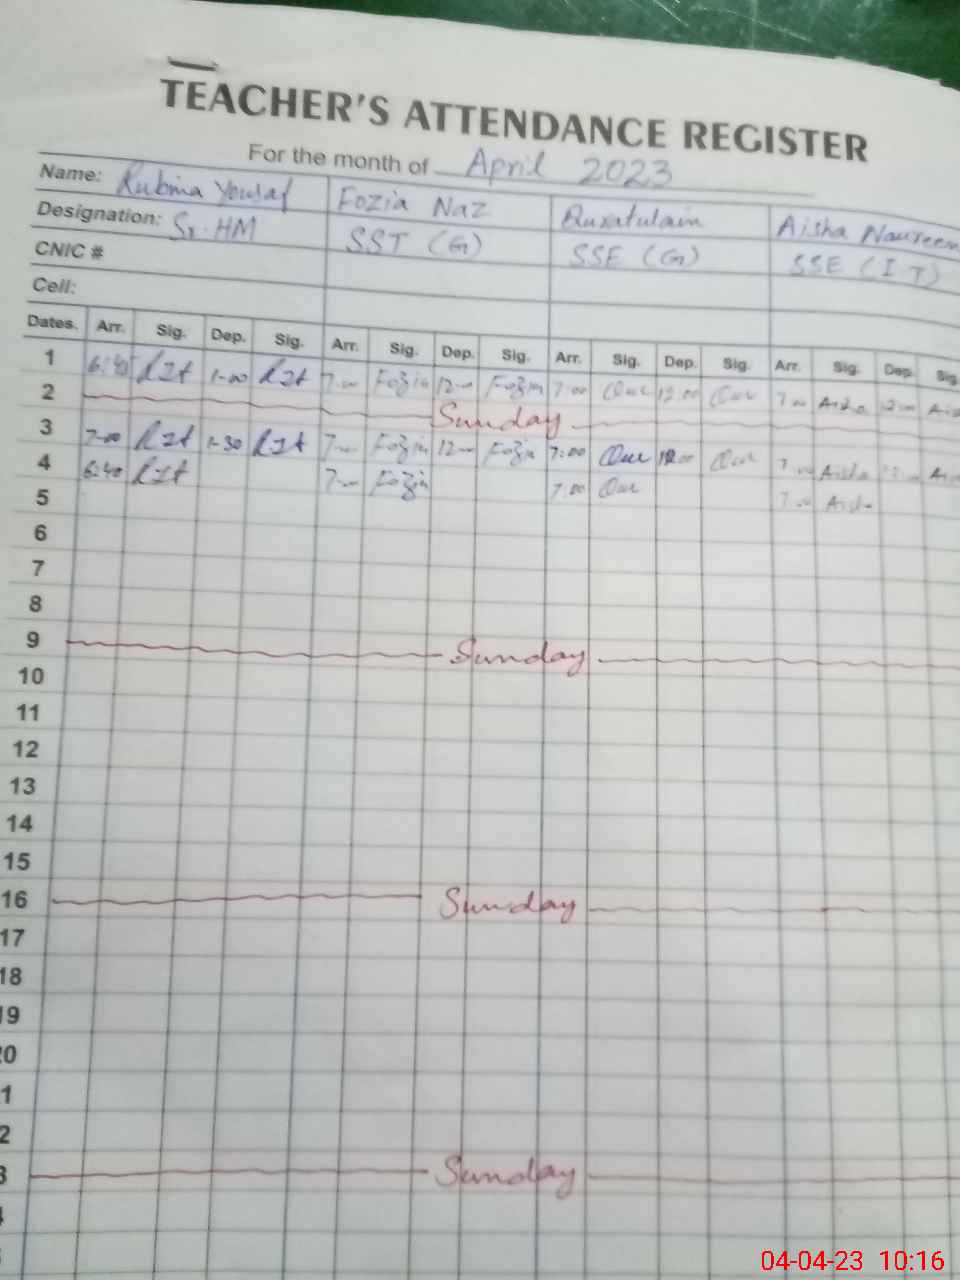 TEACHER'S ATTENDANCE REGISTER
For the month of April 2023
Name: Rubina Yousaf Fozia Naz Quratulain Aisha Noureen
Designation: Sr. HM SST (G) SSE (G) SSE (IT)
CNIC #
Cell:
Dates. Arr. Sig. Dep. Sig. Arr. Sig. Dep. Sig. Arr. Sig. Dep. Sig. Arr. Sig. Dep. Sig.
1 6:40 1-00 7-00 Fozia 12-00 Fozia 7:00 Que 12:00 Que 7-00 Aisha 12-00
2 Sunday
3 7-00 1-30 7-00 Fozia 12-00 Fozia 7:00 Que Que 7-00 Aisha
4 6:40 7-00 Fozia 7:00 Que 7-00 Aisha
5
6
7
8
9 Sunday
10
11
12
13
14
15
16 Sunday
17
18
19
20
1
2
3 Sunday
04-04-23 10:16